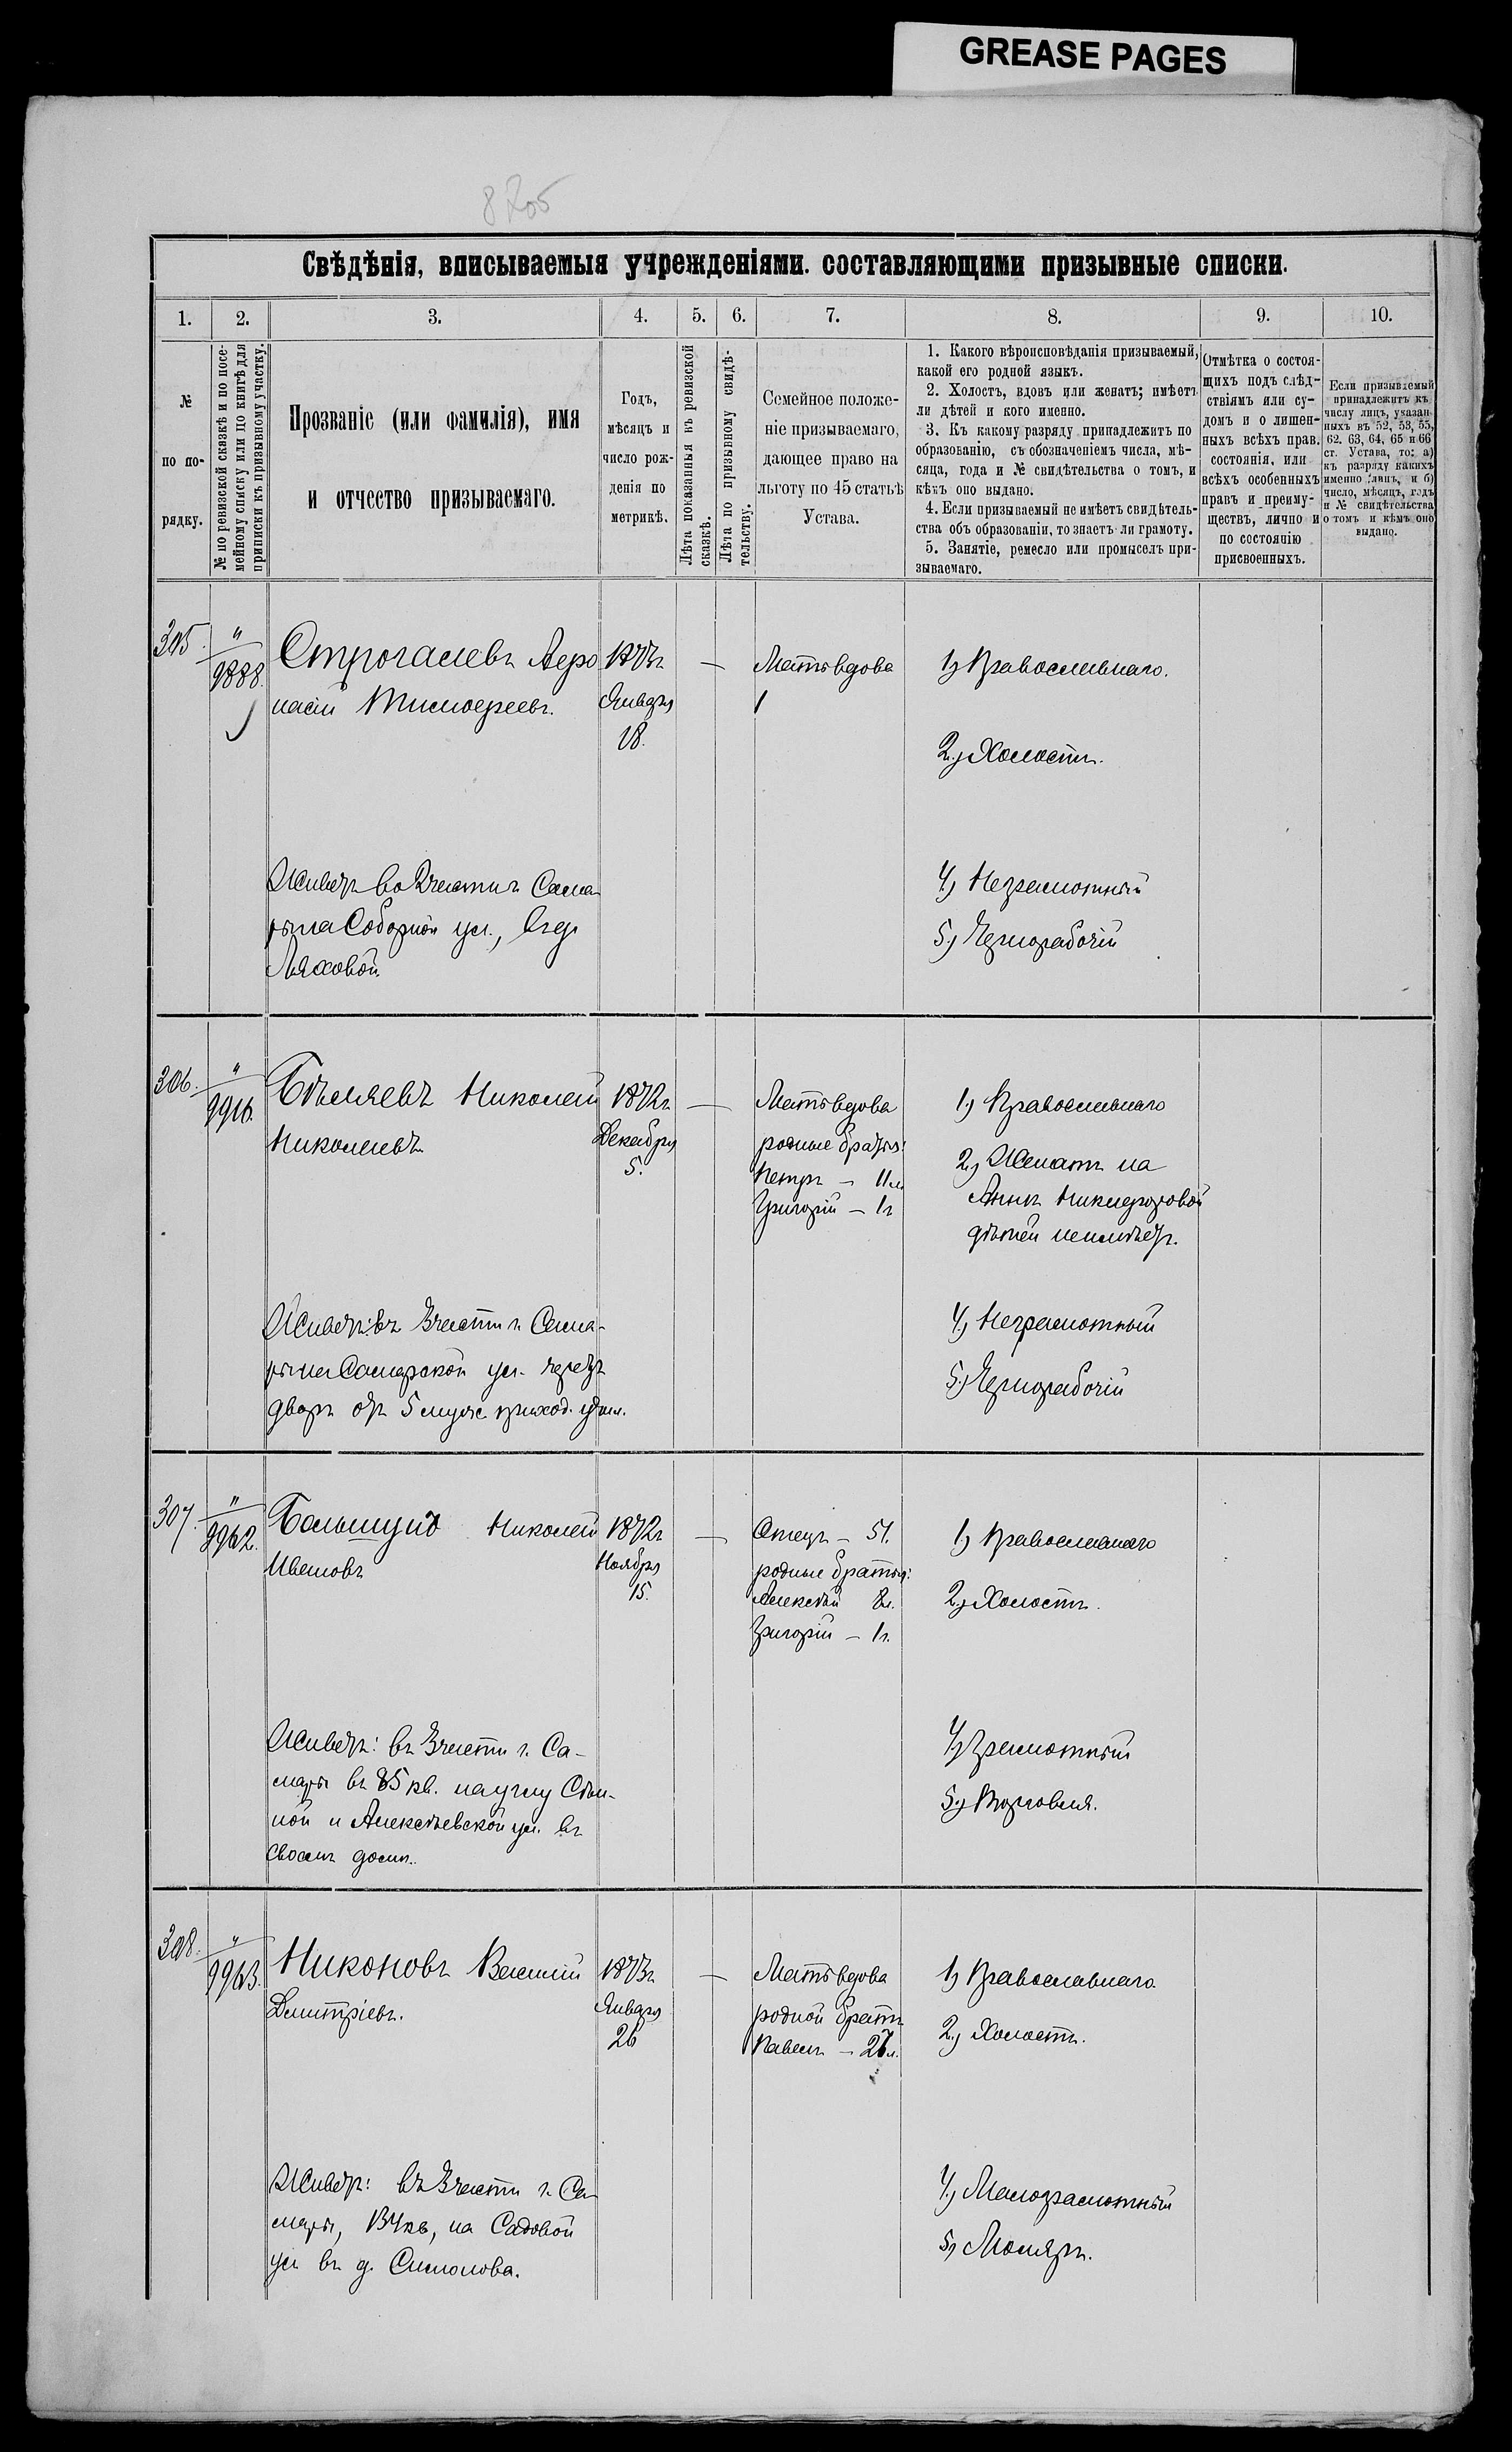 GREASE PAGES
Свѣдѣнія, вписываемыя учрежденіями. составляющими призывные списки.
1. 2. 3. 4. 5. 6. 7. 8. 9. 10.
№ по по-
рядку.
№ по ревизской сказкѣ и по посе-
мейному списку или по книгѣ для
приписки къ призывному участку.
Прозваніе (или фамилія), имя
и отчество призываемаго.
Годъ,
мѣсяцъ и
число рож-
денія по
метрикѣ.
Лѣта показанныя въ ревизской
сказкѣ.
Лѣта по призывному свидѣ-
тельству.
Семейное положе-
ніе призываемаго,
дающее право на
льготу по 45 статьѣ
Устава.
1. Какого вѣроисповѣданія призываемый,
какой его родной языкъ.
2. Холостъ, вдовъ или женатъ; имѣетъ
ли дѣтей и кого именно.
3. Къ какому разряду принадлежитъ по
образованію, съ обозначеніемъ числа, мѣ-
сяца, года и № свидѣтельства о томъ, и
кѣмъ оно выдано.
4. Если призываемый не имѣетъ свидѣтель-
ства объ образованіи, то знаетъ ли грамоту.
5. Занятіе, ремесло или промыселъ при-
зываемаго.
Отмѣтка о состоя-
щихъ подъ слѣд-
ствіямъ или су-
домъ и о лишен-
ныхъ всѣхъ прав.
состоянія, или
всѣхъ особенныхъ
правъ и преиму-
ществъ, лично и
по состоянію
присвоенныхъ.
Если призываемый
принадлежитъ къ
числу лицъ, указан-
ныхъ въ 52, 53, 55,
62, 63, 64, 65 и 66
ст. Устава, то: а)
къ разряду какихъ
именно лицъ, и б)
число, мѣсяцъ, годъ
и № свидѣтельства
о томъ и кѣмъ оно
выдано.
305. "
9888.
Строгалевъ Афо
насій Тимофеевъ.
1873г
Января
18.
—
Мать вдова
1) Православнаго.
2.) Холостъ.
Живетъ во 2 части г. Сама
ры на Соборной ул., въ д.
Ляховой.
4.) Неграмотный
5.) Чернорабочій
306. "
9916.
Бѣляевъ Николай
Николаевъ
1872г
Декабря
5.
—
Мать вдова
родные братья:
Петръ — 11л.
Григорій — 1г
1.) Православнаго
2.) Женатъ на
Аннѣ Никифоровой
дѣтей неимѣетъ.
Живетъ: въ 3 части г. Сама-
ры на Самарской ул. черезъ
дворъ отъ 5 мужс. приход. учил.
4.) Неграмотный
5.) Чернорабочій
307. "
9962.
Николай
Ивановъ
1872г
Ноября
15.
—
Отецъ — 51.
родные братья:
Алексѣй 8л.
Григорій — 1г.
1.) Православнаго
2.) Холостъ.
Живетъ: въ 3 части г. Са-
мары въ 85 кв. на углу Сѣн-
ной и Алексѣевской ул. въ
своемъ домѣ.
4) Грамотный
5.) Торговля.
308. "
9963.
Никоновъ Василій
Дмитріевъ.
1873г
Января
26
—
Мать вдова
родной братъ
Павелъ — 27л.
1) Православнаго
2.) Холостъ.
Живетъ: въ 3 части г. Са
мары, 134 кв, на Садовой
ул въ д. Симонова.
4.) Малограмотный
5) Маляръ.